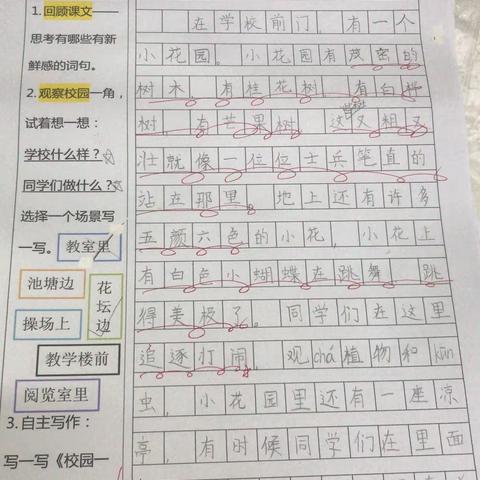 1.回顾课文——
思考有哪些有新
鲜感的词句。
2.观察校园一角，
试着想一想：
学校什么样？
同学们做什么？
选择一个场景写
一写。
教室里
池塘边
花坛边
操场上
教学楼前
阅览室里
3.自主写作：
写一写《校园一
在学校前门，有一个
小花园。小花园有茂密的
树木，有桂花树，有白桦
树，有芒果树，这又粗又
壮就像一位位士兵笔直的
站在那里。地上还有许多
五颜六色的小花，小花上
有白色小蝴蝶在跳舞，跳
得美极了。同学们在这里
追逐打闹，观chá植物和kūn
虫，小花园里还有一座凉
亭，有时候同学们在里面